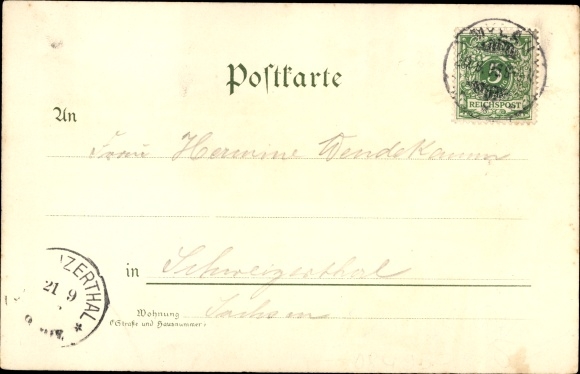 Postkarte
5
REICHSPOST
An
Frau Hermine Wendekamm
in Schweizerthal
Wohnung
(Straße und Hausnummer)
Sachsen
ZERTHAL
21 9